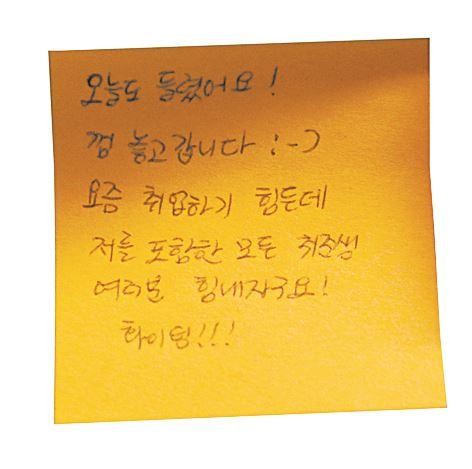 오늘도 들렸어요!
껌 놓고갑니다 :-)
요즘 취업하기 힘든데
저를 포함한 모든 취준생
여러분 힘내자구요!
화이팅!!!